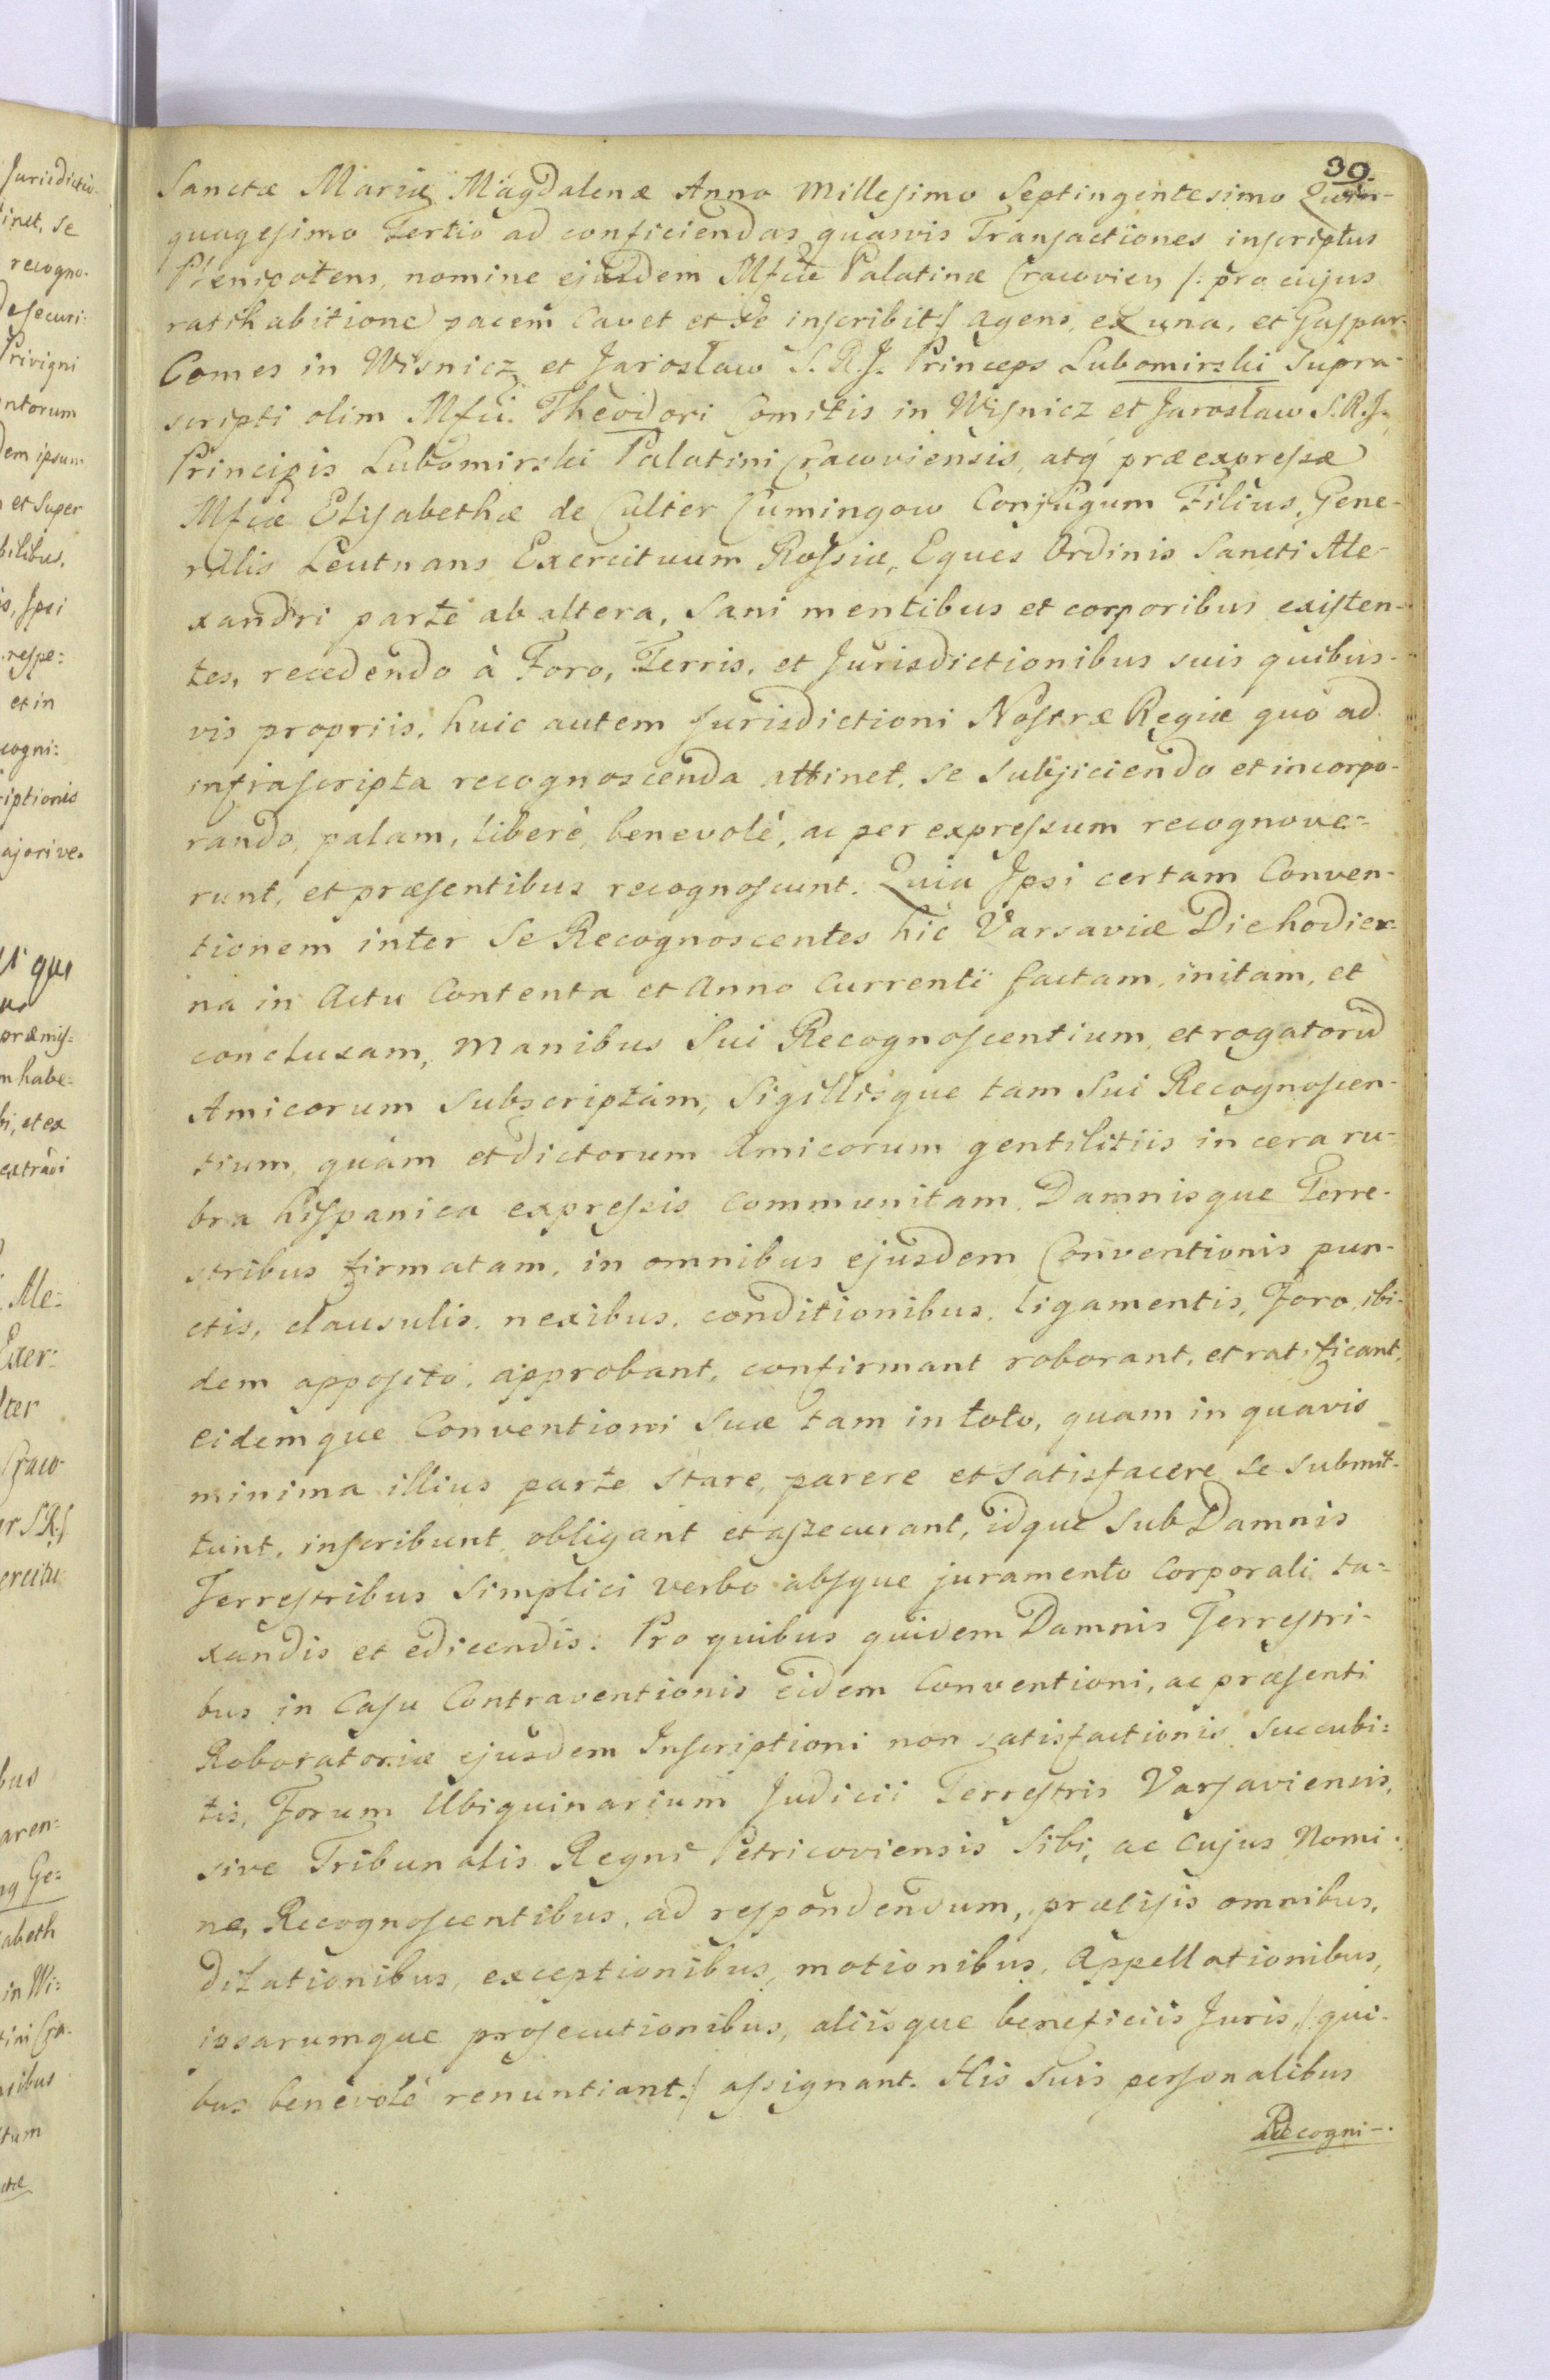 39.
Sanctæ Mariæ Magdalenæ Anno Millesimo Septingentesimo Quin-
quagesimo Tertio ad conficiendas quasvis Transactiones inscriptus
Plenipotens, nomine ejusdem Mfcæ Palatinæ Cracovien /: pro cujus
ratihabitione pacem cavet et se inscribit :/ agens, ex una, et Gaspar
Comes in Wisnicz et Jaroslaw S. R. J. Princeps Lubomirski Supra-
scripti olim Mfci. Theodori Comitis in Wisnicz et Jaroslaw S. R. J.
Principis Lubomirski Palatini Cracoviensis, atq́ præexpressæ
Mfcæ Elisabethæ de Culter Cumingow Conjugum Filius, Gene-
ralis Leutnans Exercituum Rossiæ, Eques Ordinis Sancti Ale-
xandri parte ab altera, Sani mentibus et corporibus existen-
tes, recedendo à Foro, Terris, et Jurisdictionibus suis quibus-
vis propriis, huic autem Jurisdictioni Nostræ Regiæ quò ad
infrascripta recognoscenda attinet, se subjiciendo et incorpo-
rando, palam, liberè, benevolè, ac per expressum recognove-
runt, et præsentibus recognoscunt. Quia Ipsi certam Conven-
tionem inter Se Recognoscentes hic Varsaviæ Die hodier-
na in Actu Contenta et Anno Currenti factam, initam, et
conclusam, Manibus Sui Recognoscentium, et rogatorū
Amicorum Subscriptam, Sigillisque tam Sui Recognoscen-
tium, quàm et dictorum Amicorum gentilitiis in cera ru-
bra hispanica expressis communitam, Damnisque Terre-
stribus firmatam, in omnibus ejusdem Conventionis pun-
ctis, clausulis, nexibus, conditionibus, ligamentis, Foro, ibi-
dem apposito, approbant, confirmant roborant, et ratificant,
eidemque Conventioni Suæ tam in toto, quam in quavis
minima illius parte stare, parere et satisfacere se submit-
tunt, inscribunt, obligant et assecurant, idque Sub Damnis
Terrestribus Simplici verbo absque juramento Corporali ta-
xandis et edicendis. Pro quibus quidem Damnis Terrestri-
bus in Casu Contraventionis eidem Conventioni, ac præsenti
Roboratoriæ ejusdem Inscriptioni non satisfactionis succubi-
tis, Forum Ubiquinarium Judicii Terrestris Varsaviensis,
sive Tribunalis Regni Petricoviensis Sibi, ac cujus Nomi-
ne, Recognoscentibus, ad respondendum, præcisis omnibus,
dilationibus, exceptionibus, motionibus, Appellationibus,
ipsarumque prosecutionibus, aliisque beneficiis Juris, /: qui-
bus benevolè renuntiant :/ assignant. His suis personalibus
Recogni-